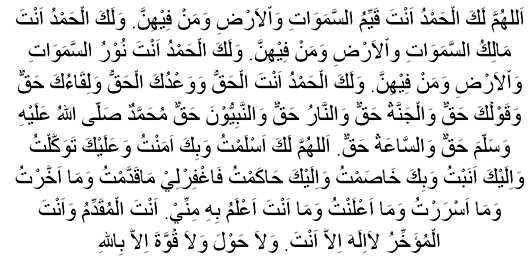 اَللهُمَّ لَكَ الْحَمْدُ اَنْتَ قَيِّمُ السَّمَوَاتِ وَاْلاَرْضِ وَمَنْ فِيْهِنَّ. وَلَكَ الْحَمْدُ اَنْتَ
مَالِكُ السَّمَوَاتِ واْلاَرْضِ وَمَنْ فِيْهِنَّ. وَلَكَ الْحَمْدُ اَنْتَ نُوْرُ السَّمَوَاتِ
وَاْلاَرْضِ وَمَنْ فِيْهِنَّ. وَلَكَ الْحَمْدُ اَنْتَ الْحَقُّ وَوَعْدُكَ الْحَقُّ وَلِقَاءُكَ حَقٌّ
وَقَوْلُكَ حَقٌّ وَالْجَنَّةُ حَقٌّ وَالنَّارُ حَقٌّ وَالنَّبِيُّوْنَ حَقٌّ مُحَمَّدٌ صَلَّى اللهُ عَلَيْهِ
وَسَلَّمَ حَقٌّ وَالسَّاعَةُ حَقٌّ. اَللهُمَّ لَكَ اَسْلَمْتُ وَبِكَ اَمَنْتُ وَعَلَيْكَ تَوَكَّلْتُ
وَاِلَيْكَ اَنَبْتُ وَبِكَ خَاصَمْتُ وَاِلَيْكَ حَاكَمْتُ فَاغْفِرْلِيْ مَاقَدَّمْتُ وَمَا اَخَّرْتُ
وَمَا اَسْرَرْتُ وَمَا اَعْلَنْتُ وَمَا اَنْتَ اَعْلَمُ بِهِ مِنِّيْ. اَنْتَ الْمُقَدِّمُ وَاَنْتَ
الْمُؤَخِّرُ لاَاِلهَ اِلاَّ اَنْتَ. وَلاَ حَوْلَ وَلاَ قُوَّةَ اِلاَّ بِاللهِ